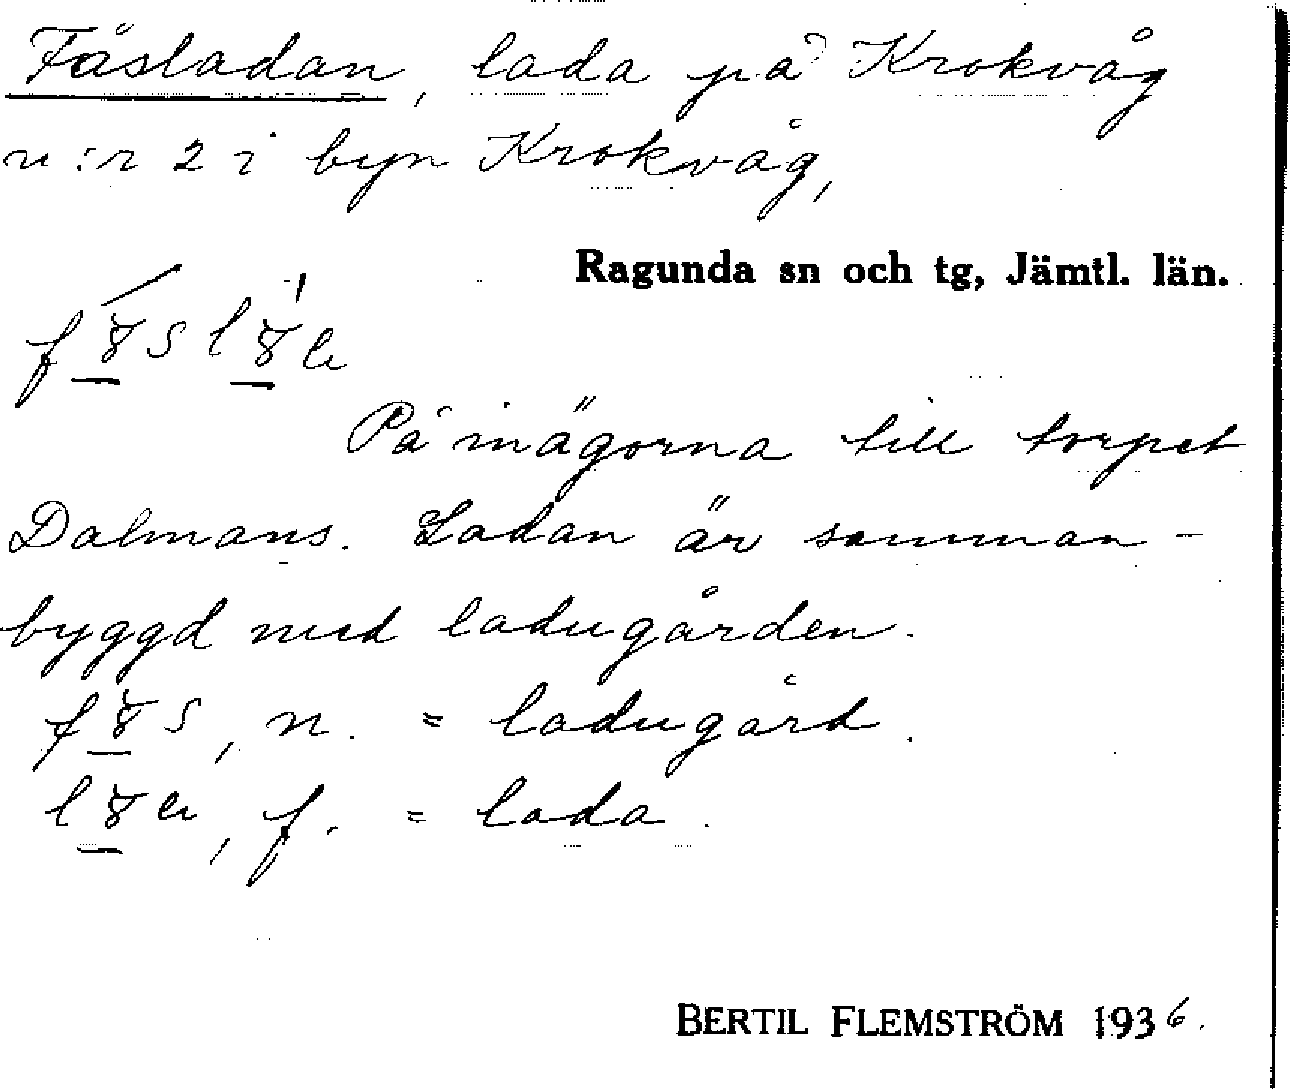 Fäsladan, lada på Krokvåg
n:r 2 i byn Krokvåg,
Ragunda sn och tg, Jämtl. län.
På inägorna till torpet
Dalmans. Ladan är samman-
byggd med ladugården.
n. = ladugård.
f. = lada.
BERTIL FLEMSTRÖM 1936.